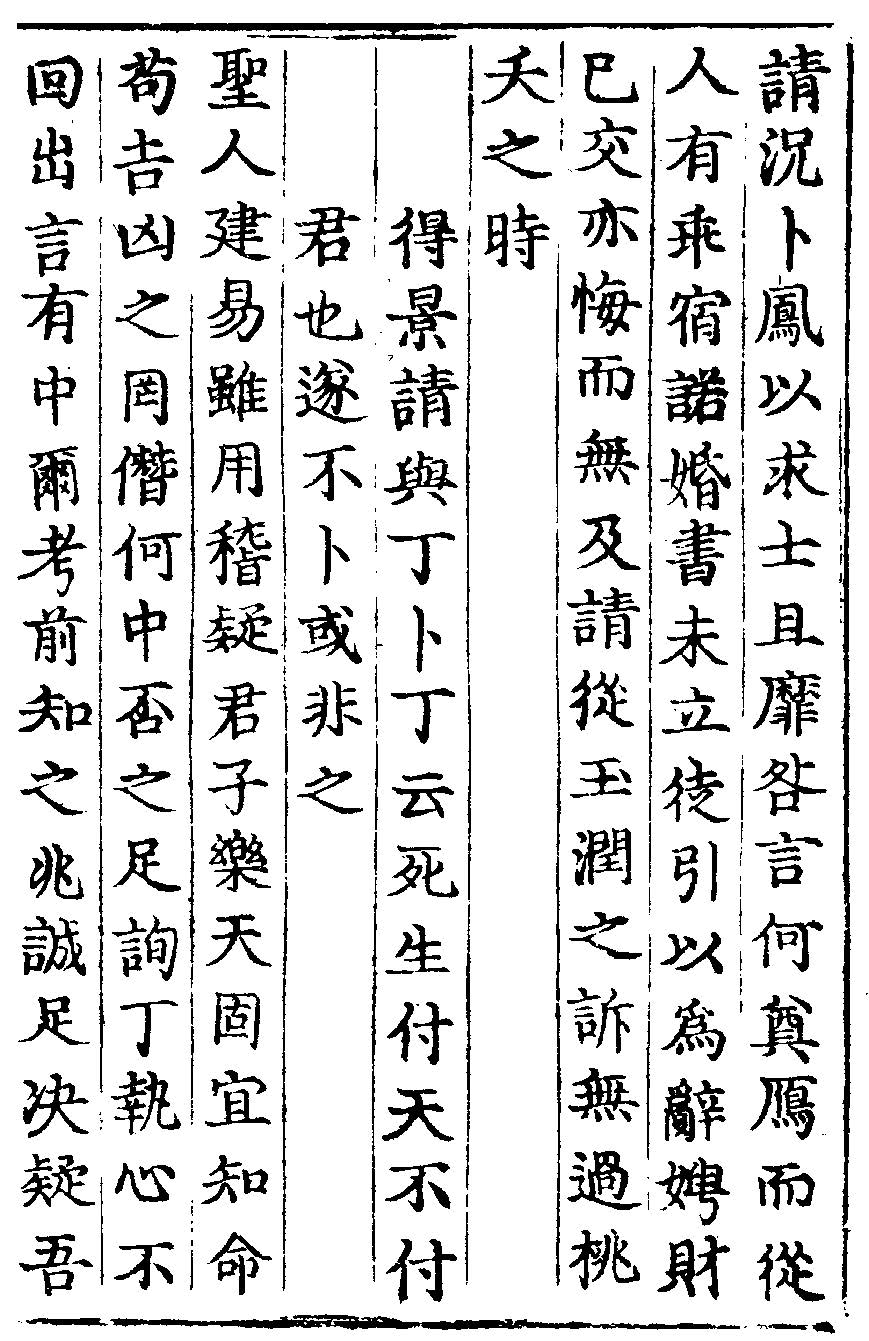 請況卜鳳以求士且靡咎言何奠鴈而從
人有乖宿諾婚書未立徒引以為辭娉財
已交亦悔而無及請從玉潤之訴無過桃
夭之時
得景請與丁卜丁云死生付天不付
君也遂不卜或非之
聖人建易雖用稽疑君子樂天固宜知命
苟吉凶之罔僭何中否之足詢丁執心不
回出言有中爾考前知之兆誠足決疑吾